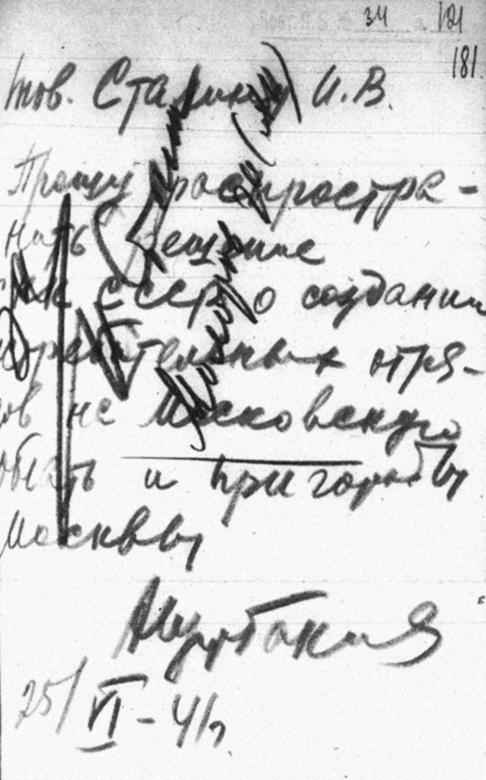 34 121
181
Тов. Сталину И.В.
Прошу распростра-
нить решение
СНК СССР о создании
истребительных отря-
дов на Московскую
область и пригороды
Москвы
25/VI-41г.